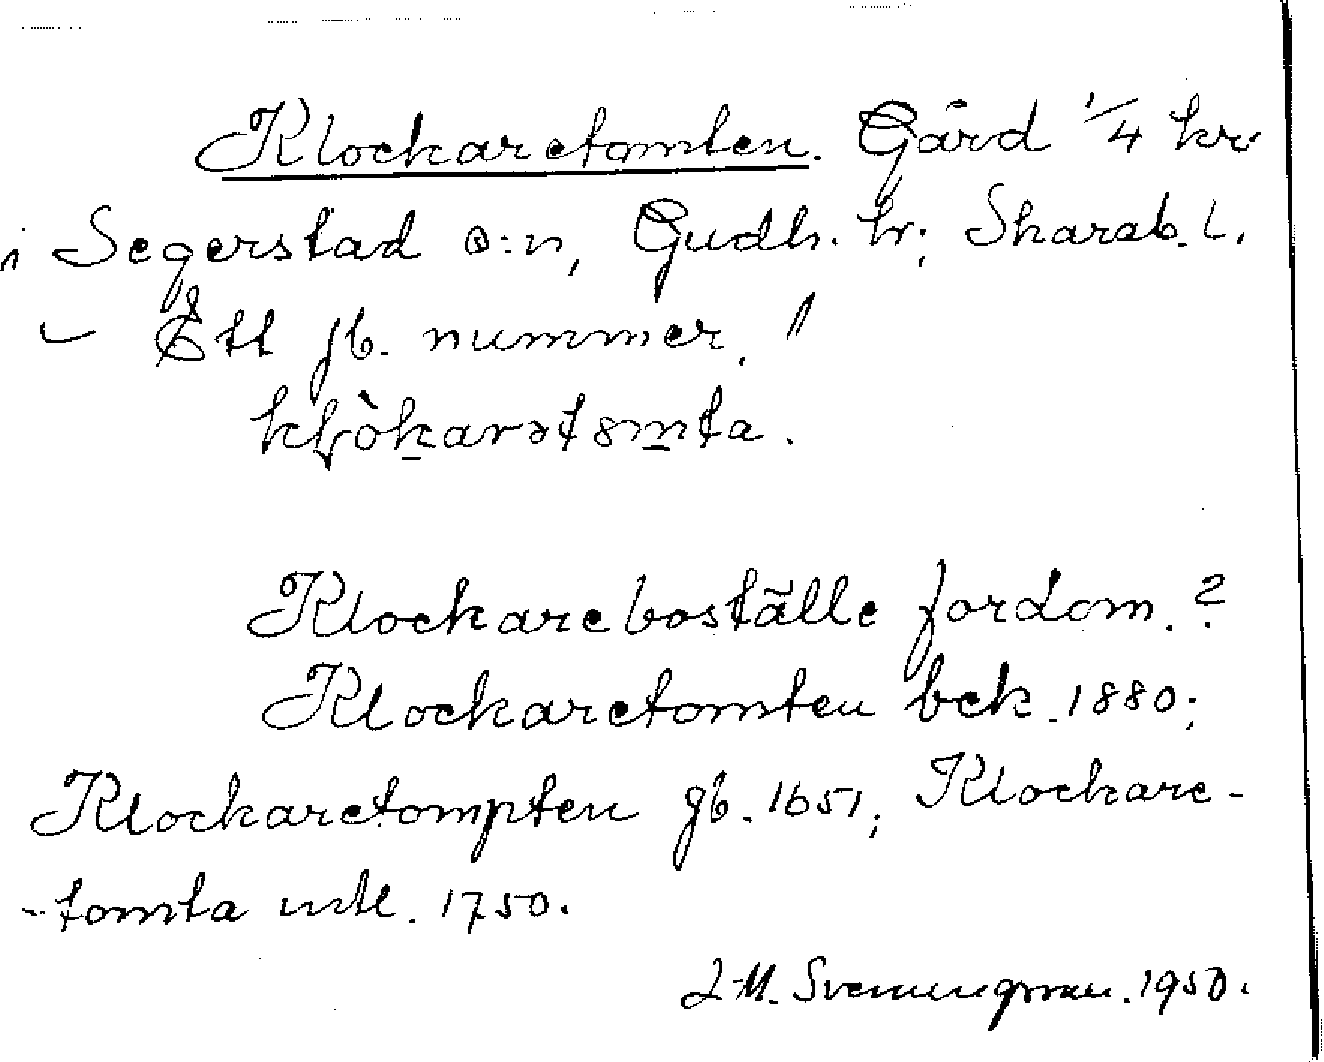 Klockaretomten. Gård 1/4 kr
i Segerstad s:n, Gudh. hr; Skarab. l.
Ett jb. nummer.
kḷòkarətȣmta.
Klockareboställe fordom. ?
Klockaretomten bek. 1880;
Klockaretompten jb. 1651; Klockare-
-tomta mtl. 1750.
J. M. Svenungsson. 1950.